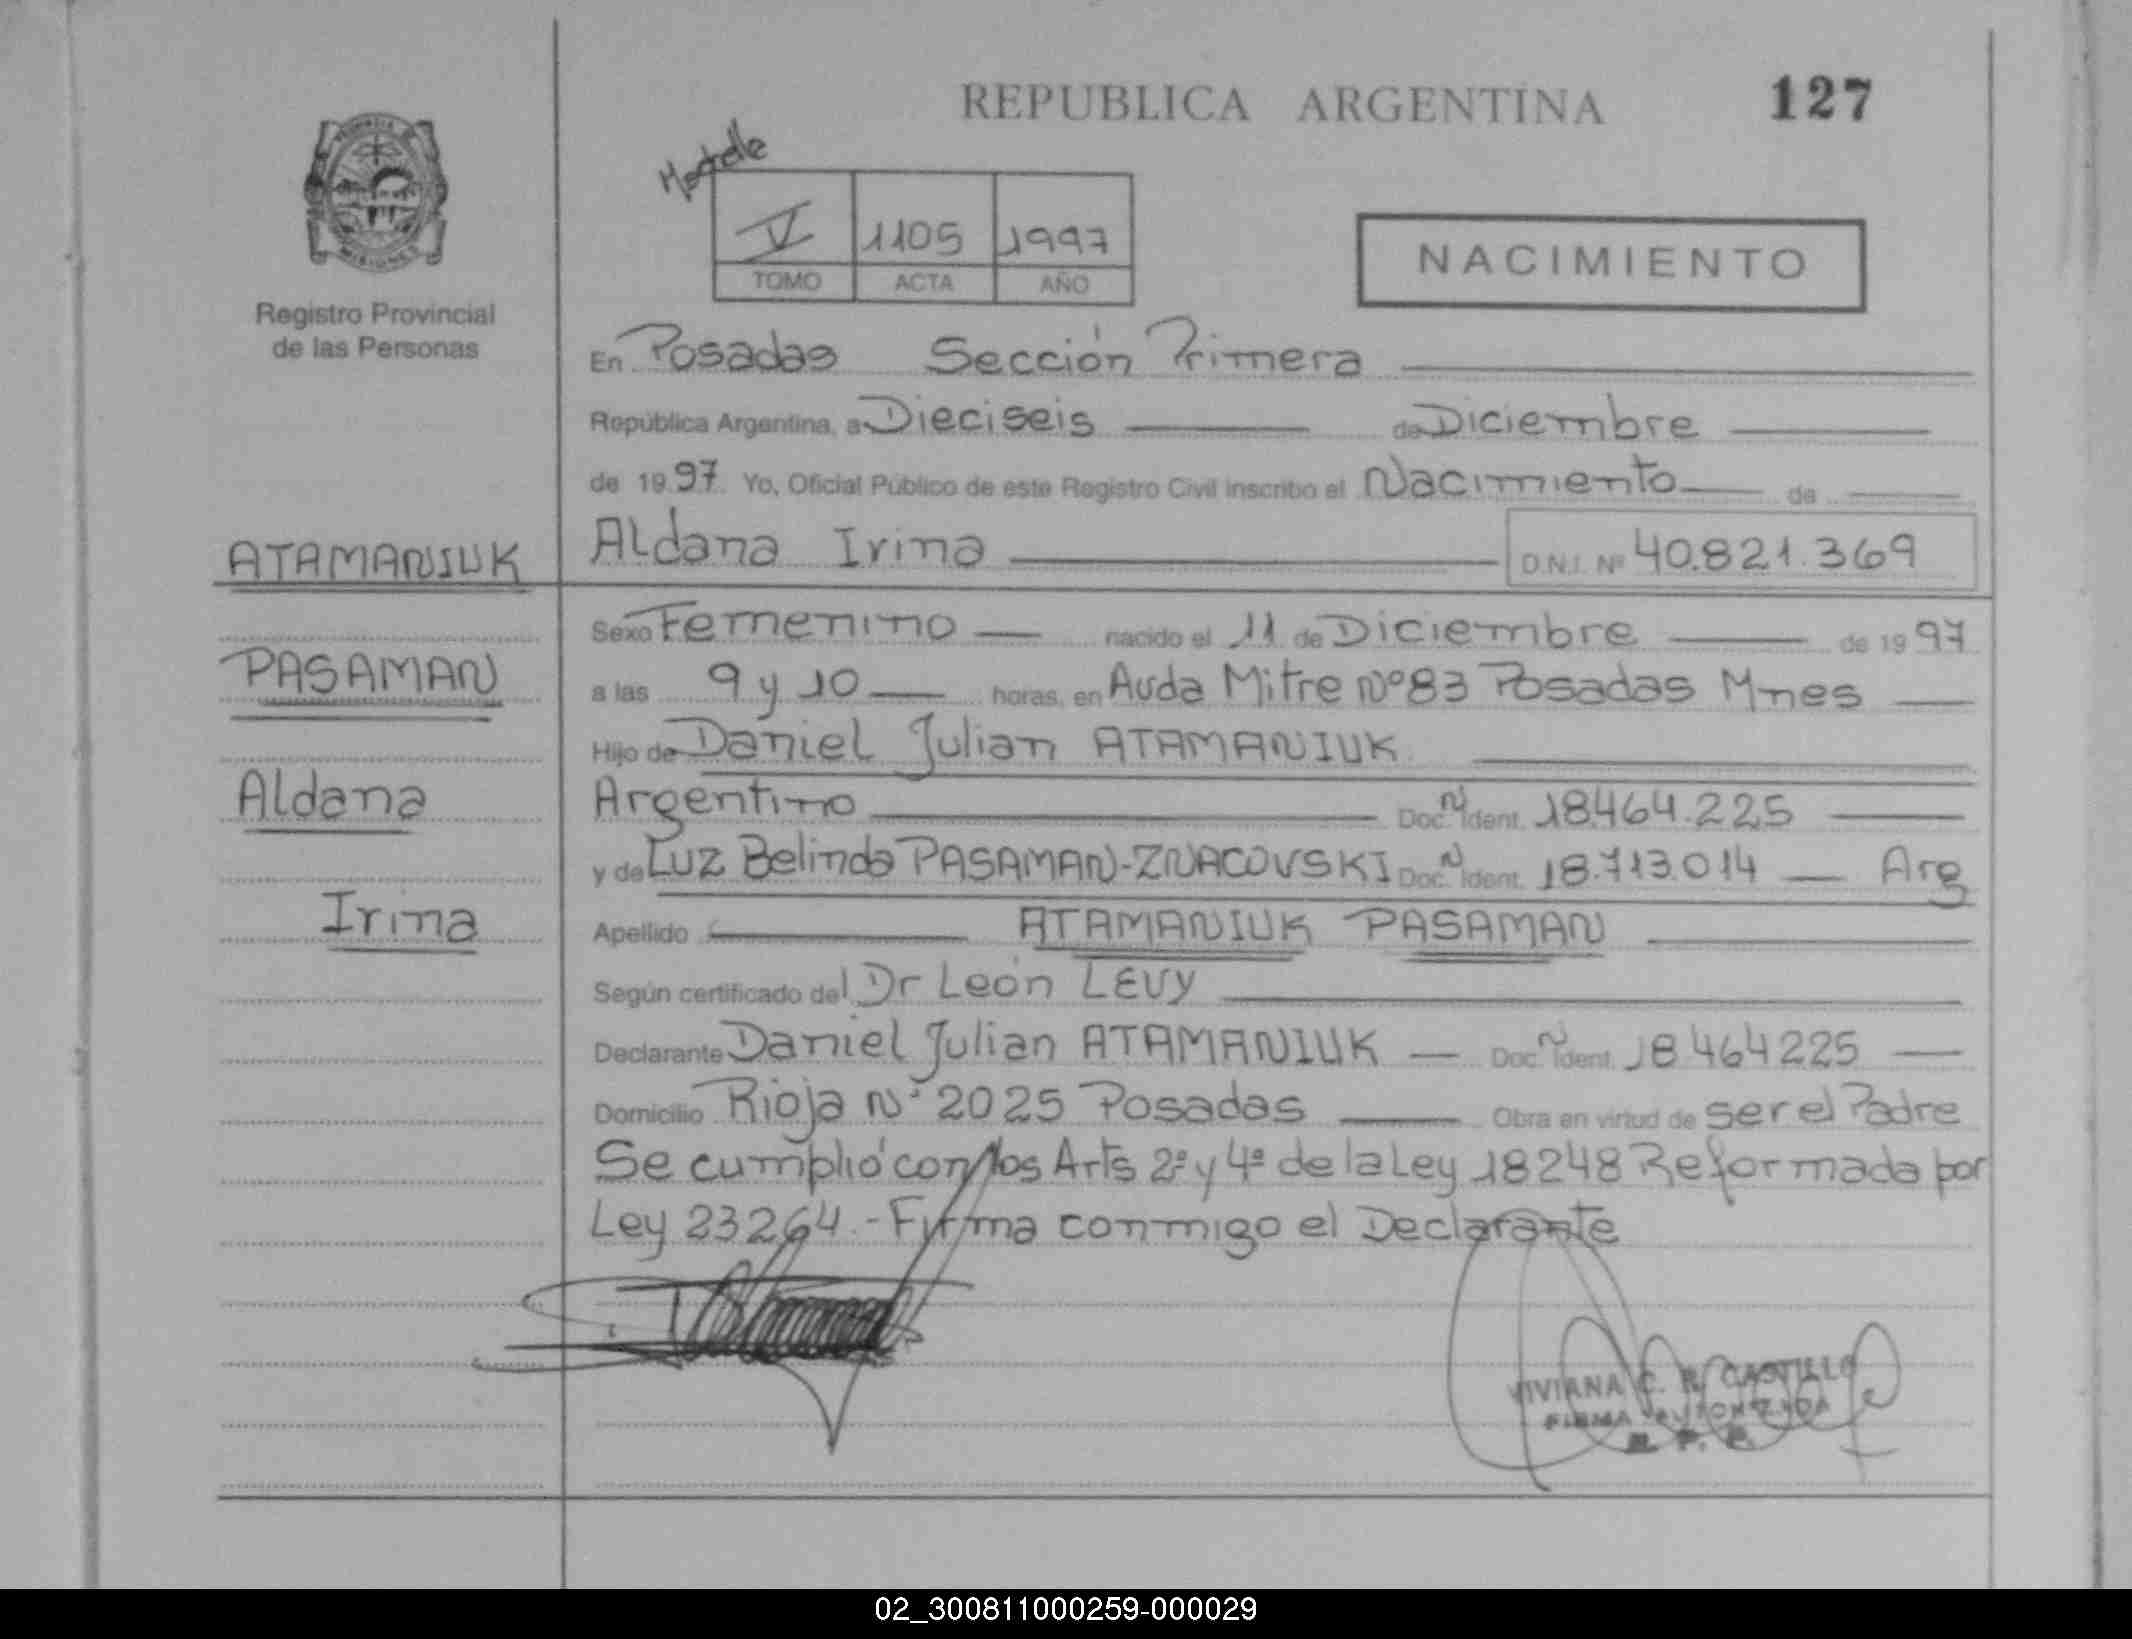 REPUBLICA ARGENTINA 127
V 1105 1997
TOMO ACTA AÑO
NACIMIENTO
PROVINCIA DE MISIONES
Registro Provincial
de las Personas
En Posadas Sección Primera
República Argentina, a Dieciseis de Diciembre
de 1997 Yo, Oficial Público de este Registro Civil inscribo el Nacimiento de
ATAMANIUK
Aldana Irina D.N.I. Nº 40.821.369
Sexo Femenino nacido el 11 de Diciembre de 1997
PASAMAN
a las 9 y 10 horas, en Avda Mitre Nº 83 Posadas Mnes
Hijo de Daniel Julian ATAMANIUK
Aldana
Argentino Doc. N Ident. 18.464.225
y de Luz Belinda PASAMAN-ZNACOVSKI Doc. N Ident. 18.713.014 Arg
Irina
Apellido ATAMANIUK PASAMAN
Según certificado del Dr León LEVY
Declarante Daniel Julian ATAMANIUK Doc. N Ident. 18464225
Domicilio Rioja Nº 2025 Posadas Obra en virtud de ser el Padre
Se cumplió con los Arts 2º y 4º de la Ley 18248 Reformada por
Ley 23264.- Firma conmigo el Declarante
VIVIANA C. R. CASTILLO
FIRMA AUTORIZADA
R. P. P.
02_300811000259-000029